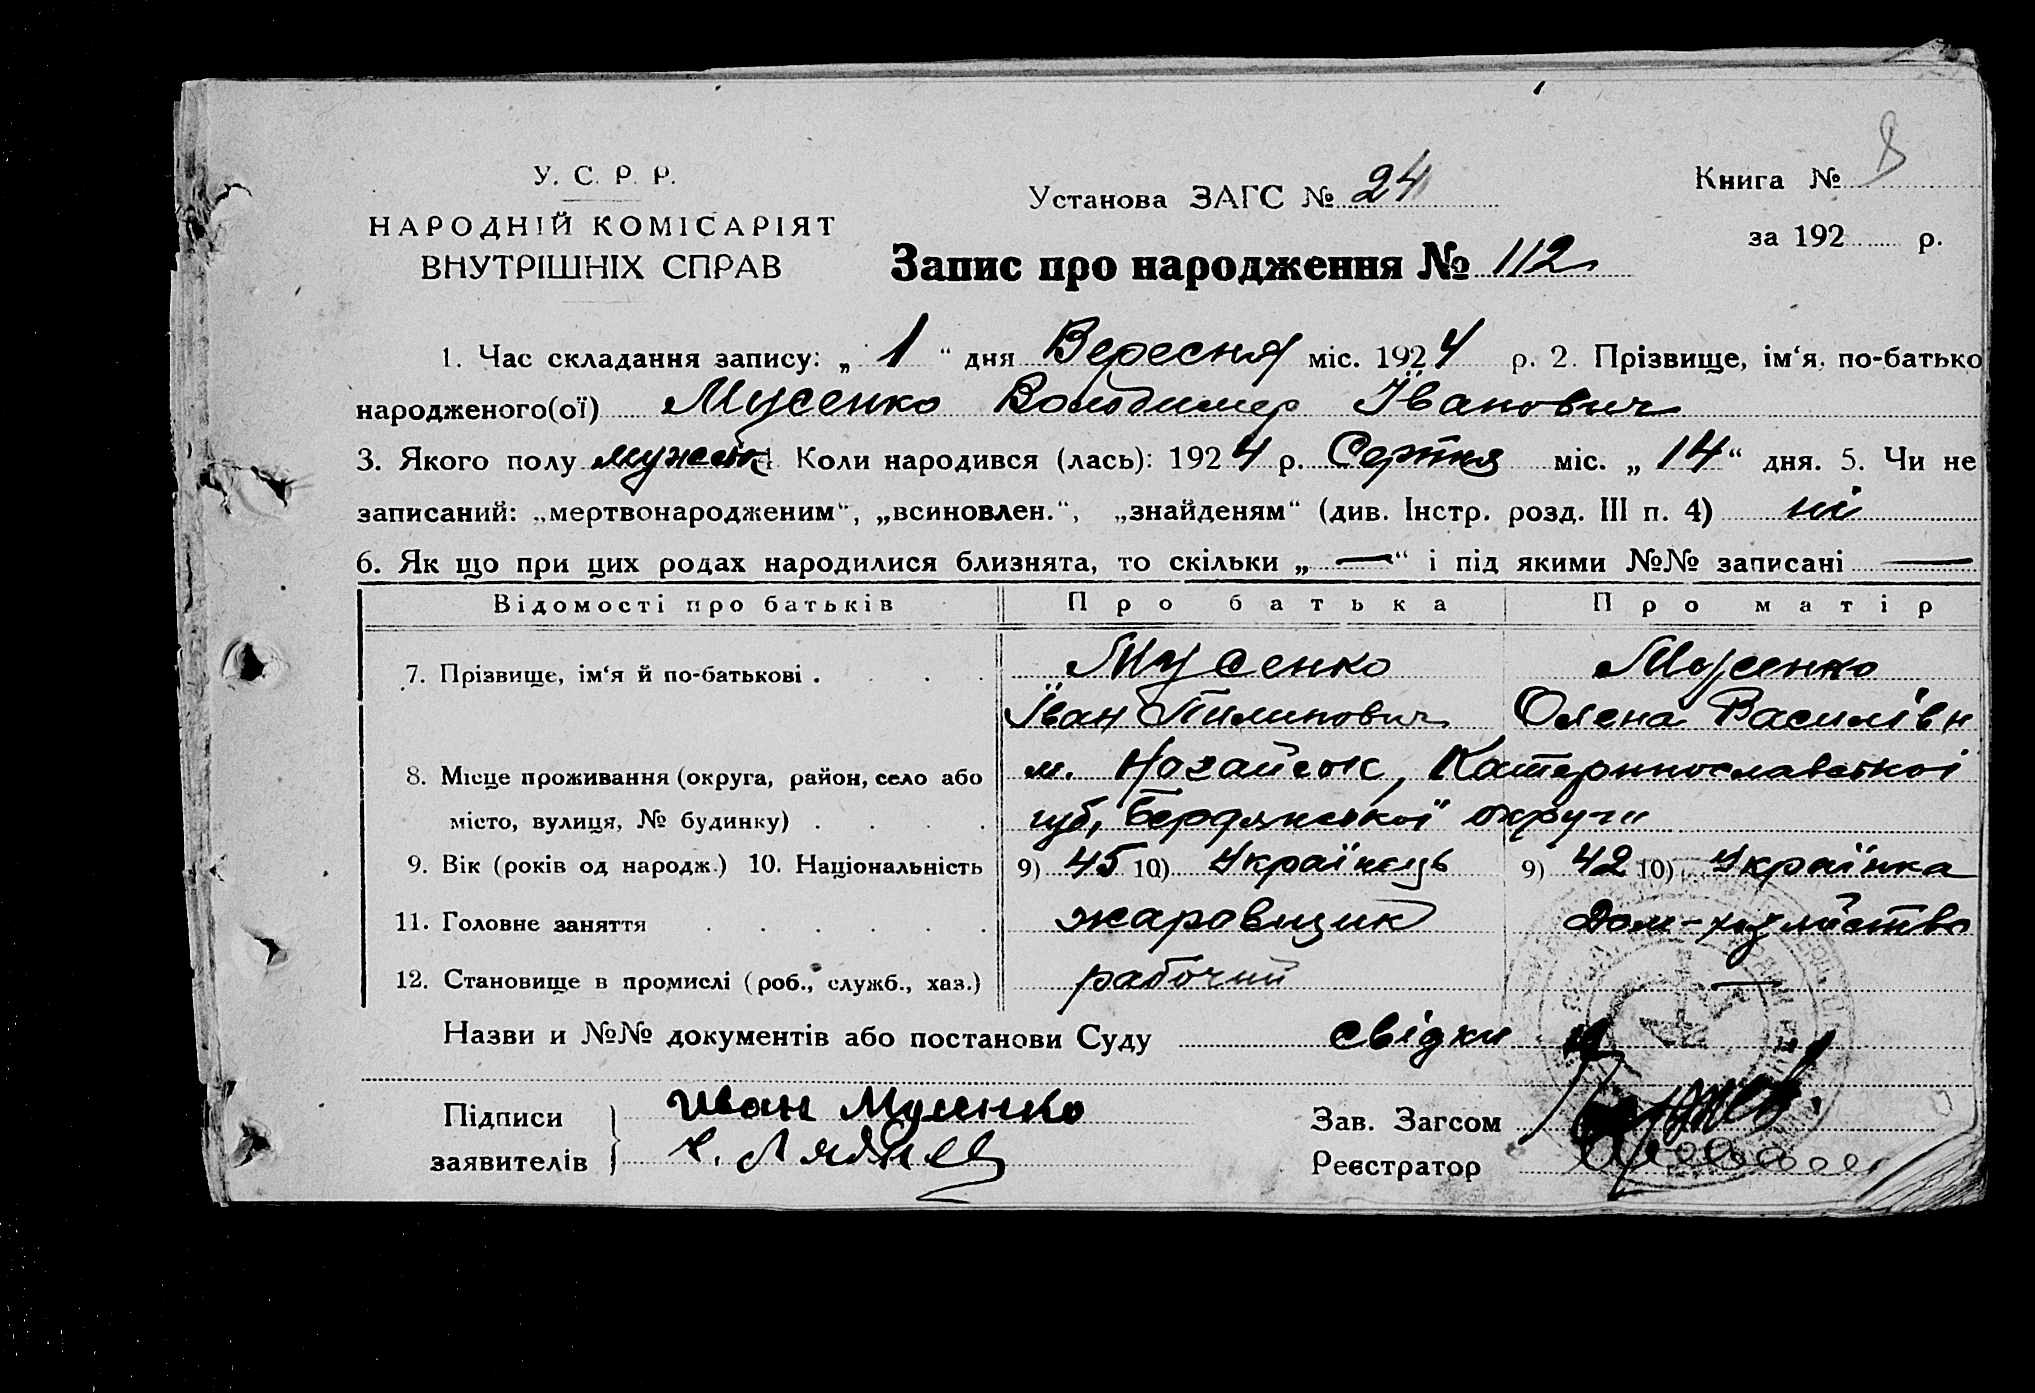 У. С. Р. Р.
НАРОДНІЙ КОМІСАРІЯТ
ВНУТРІШНІХ СПРАВ
Установа ЗАГС № 24
Книга № 8
за 192 р.
Запис про народження № 112
1. Час складання запису: „ 1 “ дня Вересня міс. 1924 р. 2. Прізвище, ім‘я, по-батько
народженого(ої) Мусенко Володимер Іванович
3. Якого полу мужськ 4 Коли народився (лась): 1924 р. Серпня міс. „ 14 “ дня. 5. Чи не
записаний: „мертвонародженим“, „всиновлен.“, „знайденям“ (див. Інстр. розд. III п. 4) ні
6. Як що при цих родах народилися близнята, то скільки „ — “ і під якими №№ записані —
Відомості про батьків Про батька Про матір
7. Прізвище, ім‘я й по-батькові . Мусенко Мусенко
Іван Пилипович Олена Василівн
8. Місце проживання (округа, район, село або м. Ногайськ, Катеринославської
місто, вулиця, № будинку) . губ, Бердянської округи
9. Вік (років од народж.) 10. Національність 9) 45 10) Українець 9) 42 10) Українка
11. Головне заняття жаровщик Дом-хозяйство
12. Становище в промислі (роб., служб., хаз.) рабочий —
Назви и №№ документів або постанови Суду свідки
Підписи Иван Мусенко Зав. Загсом
заявителів Реєстратор